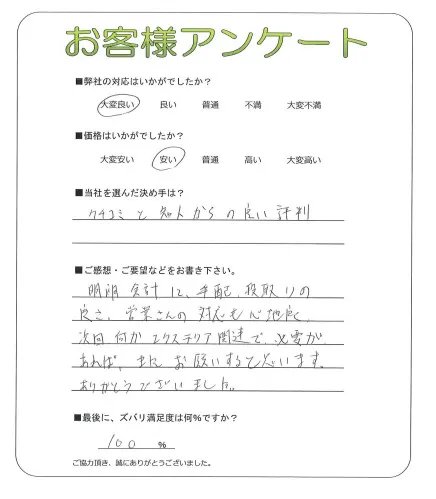 お客様アンケート
■弊社の対応はいかがでしたか？
大変良い 良い 普通 不満 大変不満
■価格はいかがでしたか？
大変安い 安い 普通 高い 大変高い
■当社を選んだ決め手は？
クチコミと知人からの良い評判
■ご感想・ご要望などをお書き下さい。
明朗会計に、手配、段取りの
良さ、営業さんの対応も心地良く、
次回何かエクステリア関連で、必要が
あれば、またお願いすると思います。
ありがとうございました。
■最後に、ズバリ満足度は何%ですか？
100 %
ご協力頂き、誠にありがとうございました。